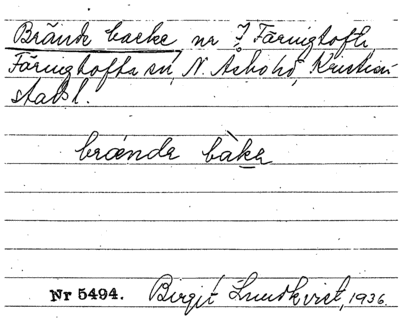 Brände backe nr 7 Färingtofta,
Färingtofta sn, N. Åsbo hd, Kristian-
stads l.
brænda bàka
Nr 5494. Birgit Lundkvist, 1936.